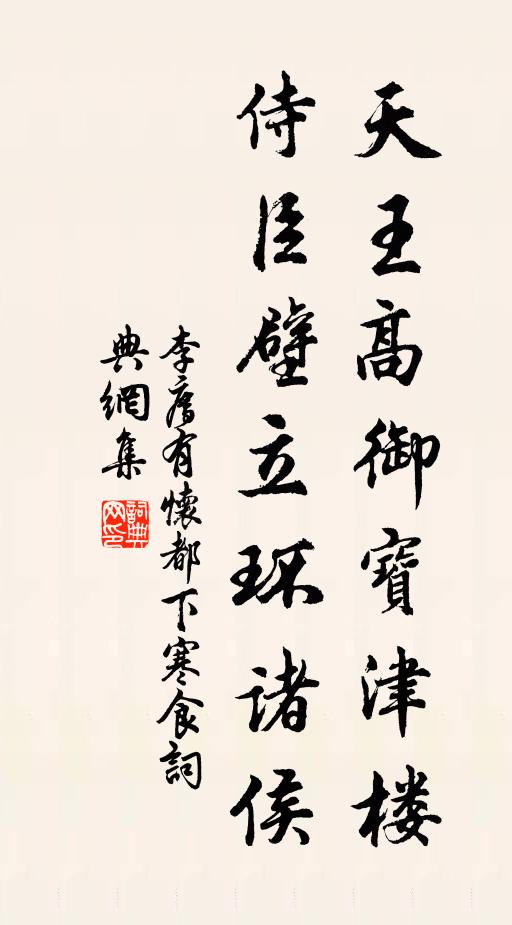 天王髙御寶津楼
侍臣壁立环诸侯
李廌有懷都下寒食詞
典網集
詞典
网印